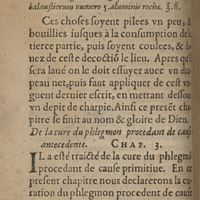 balaustiorum numero 5. aluminis rochæ. ʒ.ß.
Ces choses soyent pilees vn peu, &
bouillies iusques à la consumption de
tierce partie, puis soyent coulees, &
uez de ceste decoctiō le lieu. Apres qu'
sera laué on le doit essuyer auec vn
peau net, puis faut appliquer de cest
guent dernier escrit, en mettant dessou
vn depit de charpie. Ainsi ce presēt cha
tre se finit au nom & gloire de Dieu.
De la cure du phlegmon procedant de cause
antecedente. CHAP. 3.
IL a esté traicté de la cure du phlegmō
procedant de cause primitiue. En ce
present chapitre nous declarerons la cu
ration du phlegmon procedent de cause